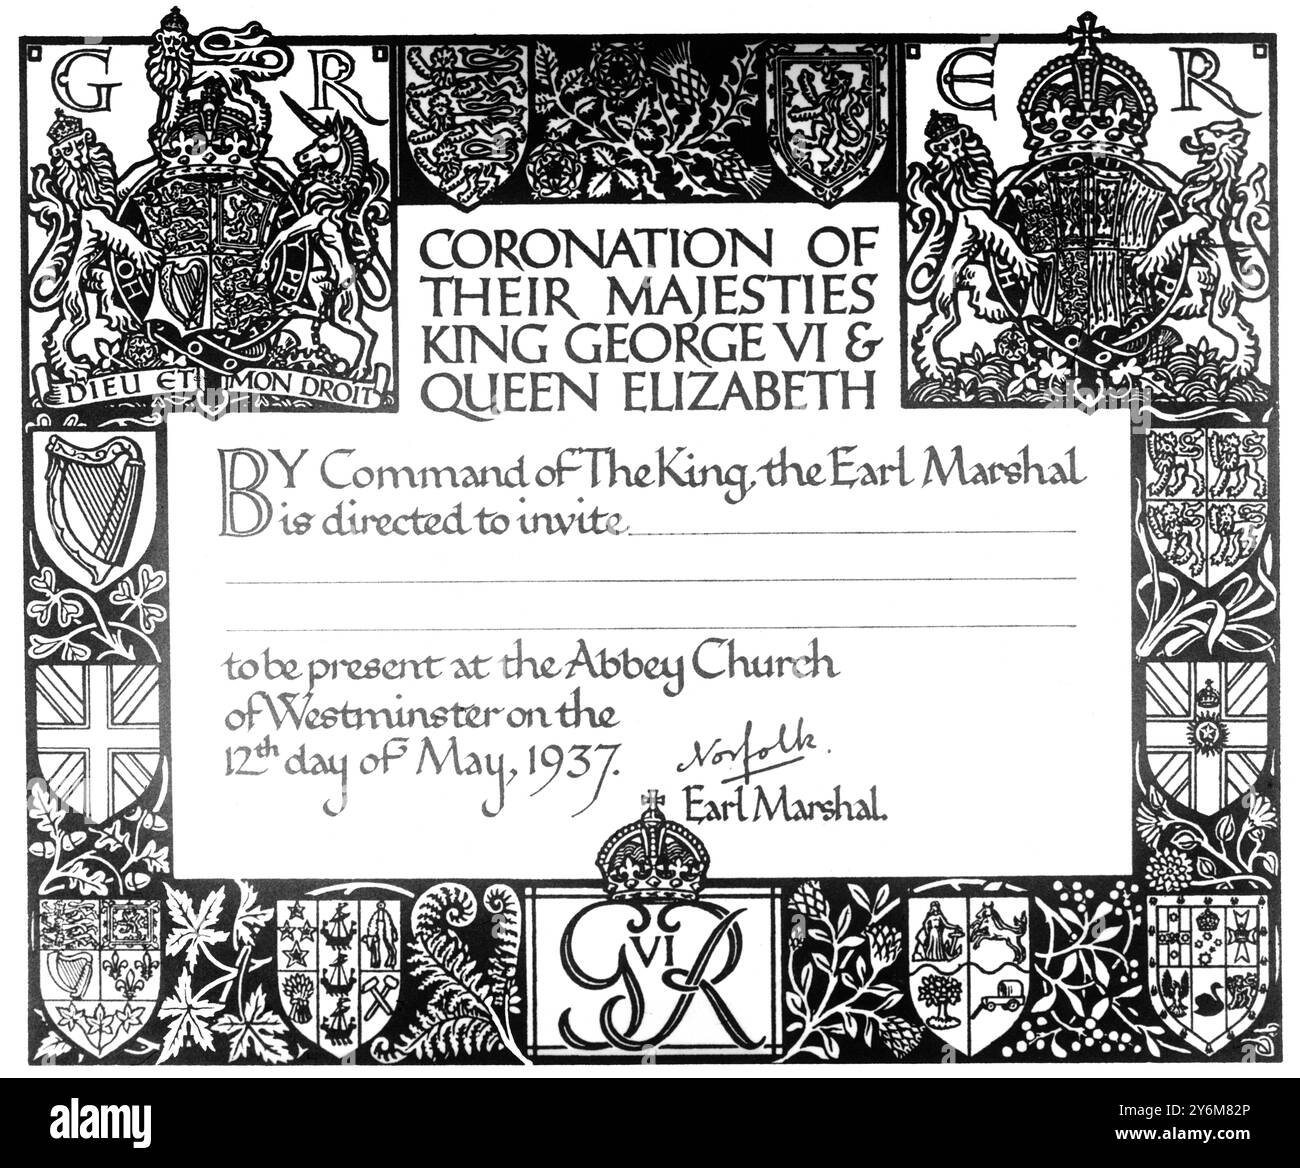 G R
E R
DIEU ET MON DROIT
CORONATION OF
THEIR MAJESTIES
KING GEORGE VI &
QUEEN ELIZABETH
BY Command of The King, the Earl Marshal
is directed to invite
to be present at the Abbey Church
of Westminster on the
12th day of May, 1937.
Norfolk.
Earl Marshal.
G VI R
alamy
Image ID: 2Y6M82P
www.alamy.com